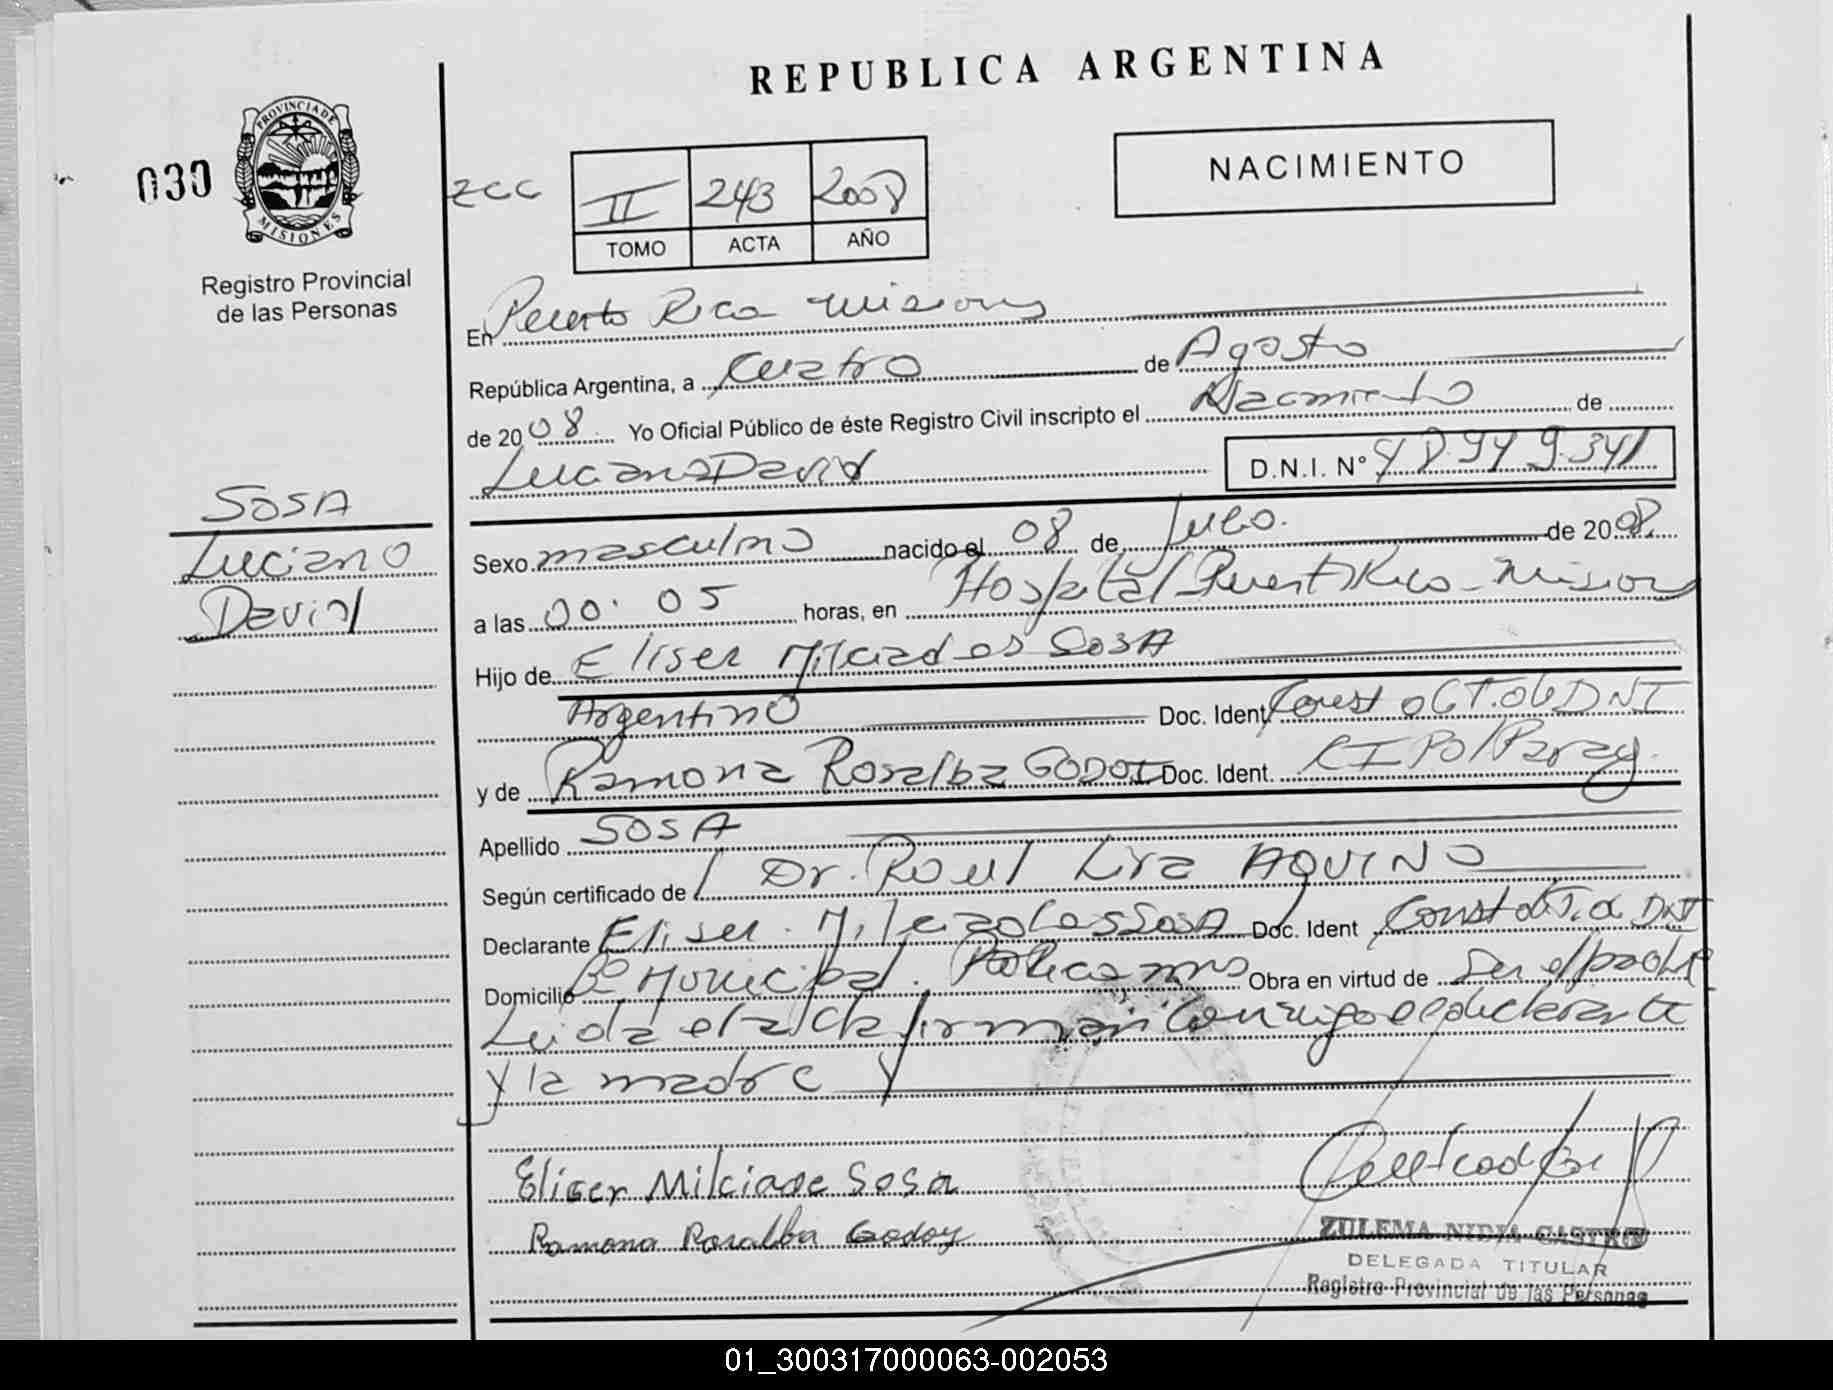 REPUBLICA ARGENTINA
PROVINCIA DE
MISIONES
030
Registro Provincial
de las Personas
II 243 2008
TOMO ACTA AÑO
NACIMIENTO
En Puerto Rico Misiones
República Argentina, a Cuatro de Agosto
de 2008 Yo Oficial Público de éste Registro Civil inscripto el Nacimiento de
Luciano David D.N.I. N°
SOSA
Luciano
David
Sexo masculino nacido el 08 de Julio de 2008.
a las 00:05 horas, en Hospital Puerto Rico - Mision
Hijo de Eliser Milciades SOSA
Argentino Doc. Ident Const
y de Ramona Rosalba GODOI Doc. Ident. CI Pol Parag.
Apellido SOSA
Según certificado de Dr. Raul Lira AQUINO
Declarante Eliser Milciades SOSA Doc. Ident Const
Domicilio Bº Municipal. Obra en virtud de Ser el padre
Leida el acta firman conmigo el declarante
y la madre
Eliser Milciade Sosa
Ramona Rosalba Godoy
ZULEMA NIDIA CASTRO
DELEGADA TITULAR
Registro Provincial de las Personas
01_300317000063-002053